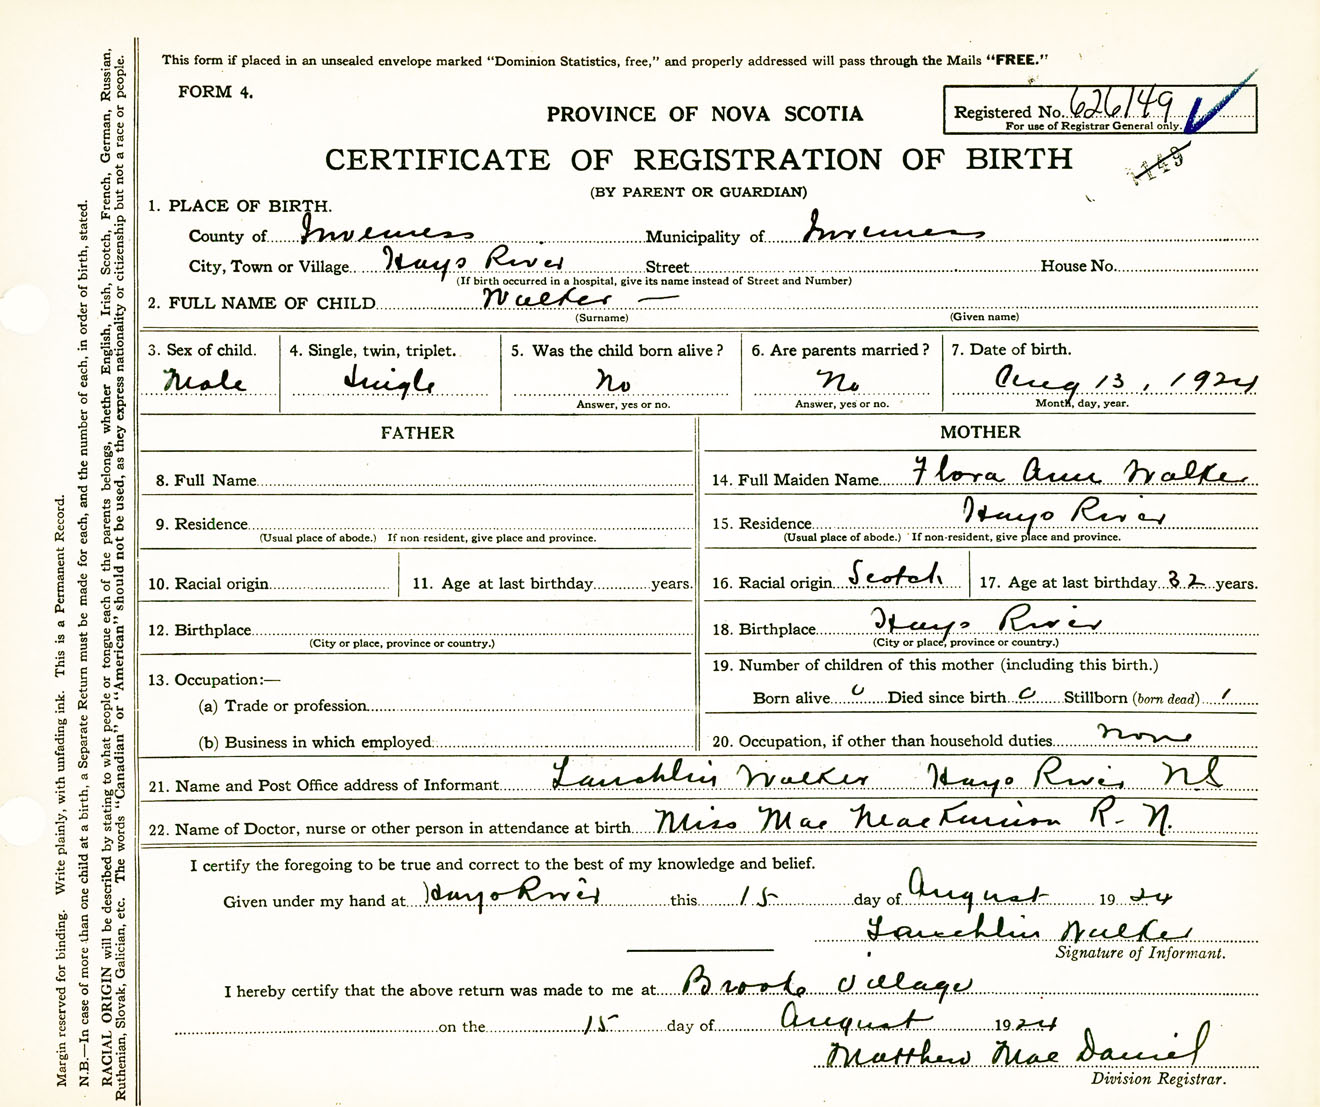 This form if placed in an unsealed envelope marked "Dominion Statistics, free," and properly addressed will pass through the Mails "FREE."
FORM 4.
PROVINCE OF NOVA SCOTIA
Registered No. 626149
For use of Registrar General only.
1149
CERTIFICATE OF REGISTRATION OF BIRTH
(BY PARENT OR GUARDIAN)
1. PLACE OF BIRTH.
County of Inverness Municipality of Inverness
City, Town or Village Hays River Street House No.
(If birth occurred in a hospital, give its name instead of Street and Number)
2. FULL NAME OF CHILD Walker —
(Surname) (Given name)
3. Sex of child. 4. Single, twin, triplet. 5. Was the child born alive? 6. Are parents married? 7. Date of birth.
Male Single No No Aug 13, 1924
Answer, yes or no. Answer, yes or no. Month, day, year.
FATHER MOTHER
8. Full Name 14. Full Maiden Name Flora Ann Walker
9. Residence 15. Residence Hays River
(Usual place of abode.) If non-resident, give place and province. (Usual place of abode.) If non-resident, give place and province.
10. Racial origin 11. Age at last birthday years. 16. Racial origin Scotch 17. Age at last birthday 32 years.
12. Birthplace 18. Birthplace Hays River
(City or place, province or country.) (City or place, province or country.)
19. Number of children of this mother (including this birth.)
13. Occupation:—
(a) Trade or profession Born alive 0 Died since birth 0 Stillborn (born dead) 1
(b) Business in which employed 20. Occupation, if other than household duties none
21. Name and Post Office address of Informant Lauchlin Walker Hays River N S
22. Name of Doctor, nurse or other person in attendance at birth Miss Mae MacKinnon R. N.
I certify the foregoing to be true and correct to the best of my knowledge and belief.
Given under my hand at Hays River this 15 day of August 1924
Lauchlin Walker
Signature of Informant.
I hereby certify that the above return was made to me at Brook Village
on the 15 day of August 1924
Matthew MacDaniel
Division Registrar.
Margin reserved for binding. Write plainly, with unfading ink. This is a Permanent Record.
N.B.—In case of more than one child at a birth, a Separate Return must be made for each, and the number of each, in order of birth, stated.
RACIAL ORIGIN will be described by stating to what people or tongue each of the parents belongs, whether English, Irish, Scotch, French, German, Russian,
Ruthenian, Slovak, Galician, etc. The words "Canadian" or "American" should not be used, as they express nationality or citizenship but not a race or people.